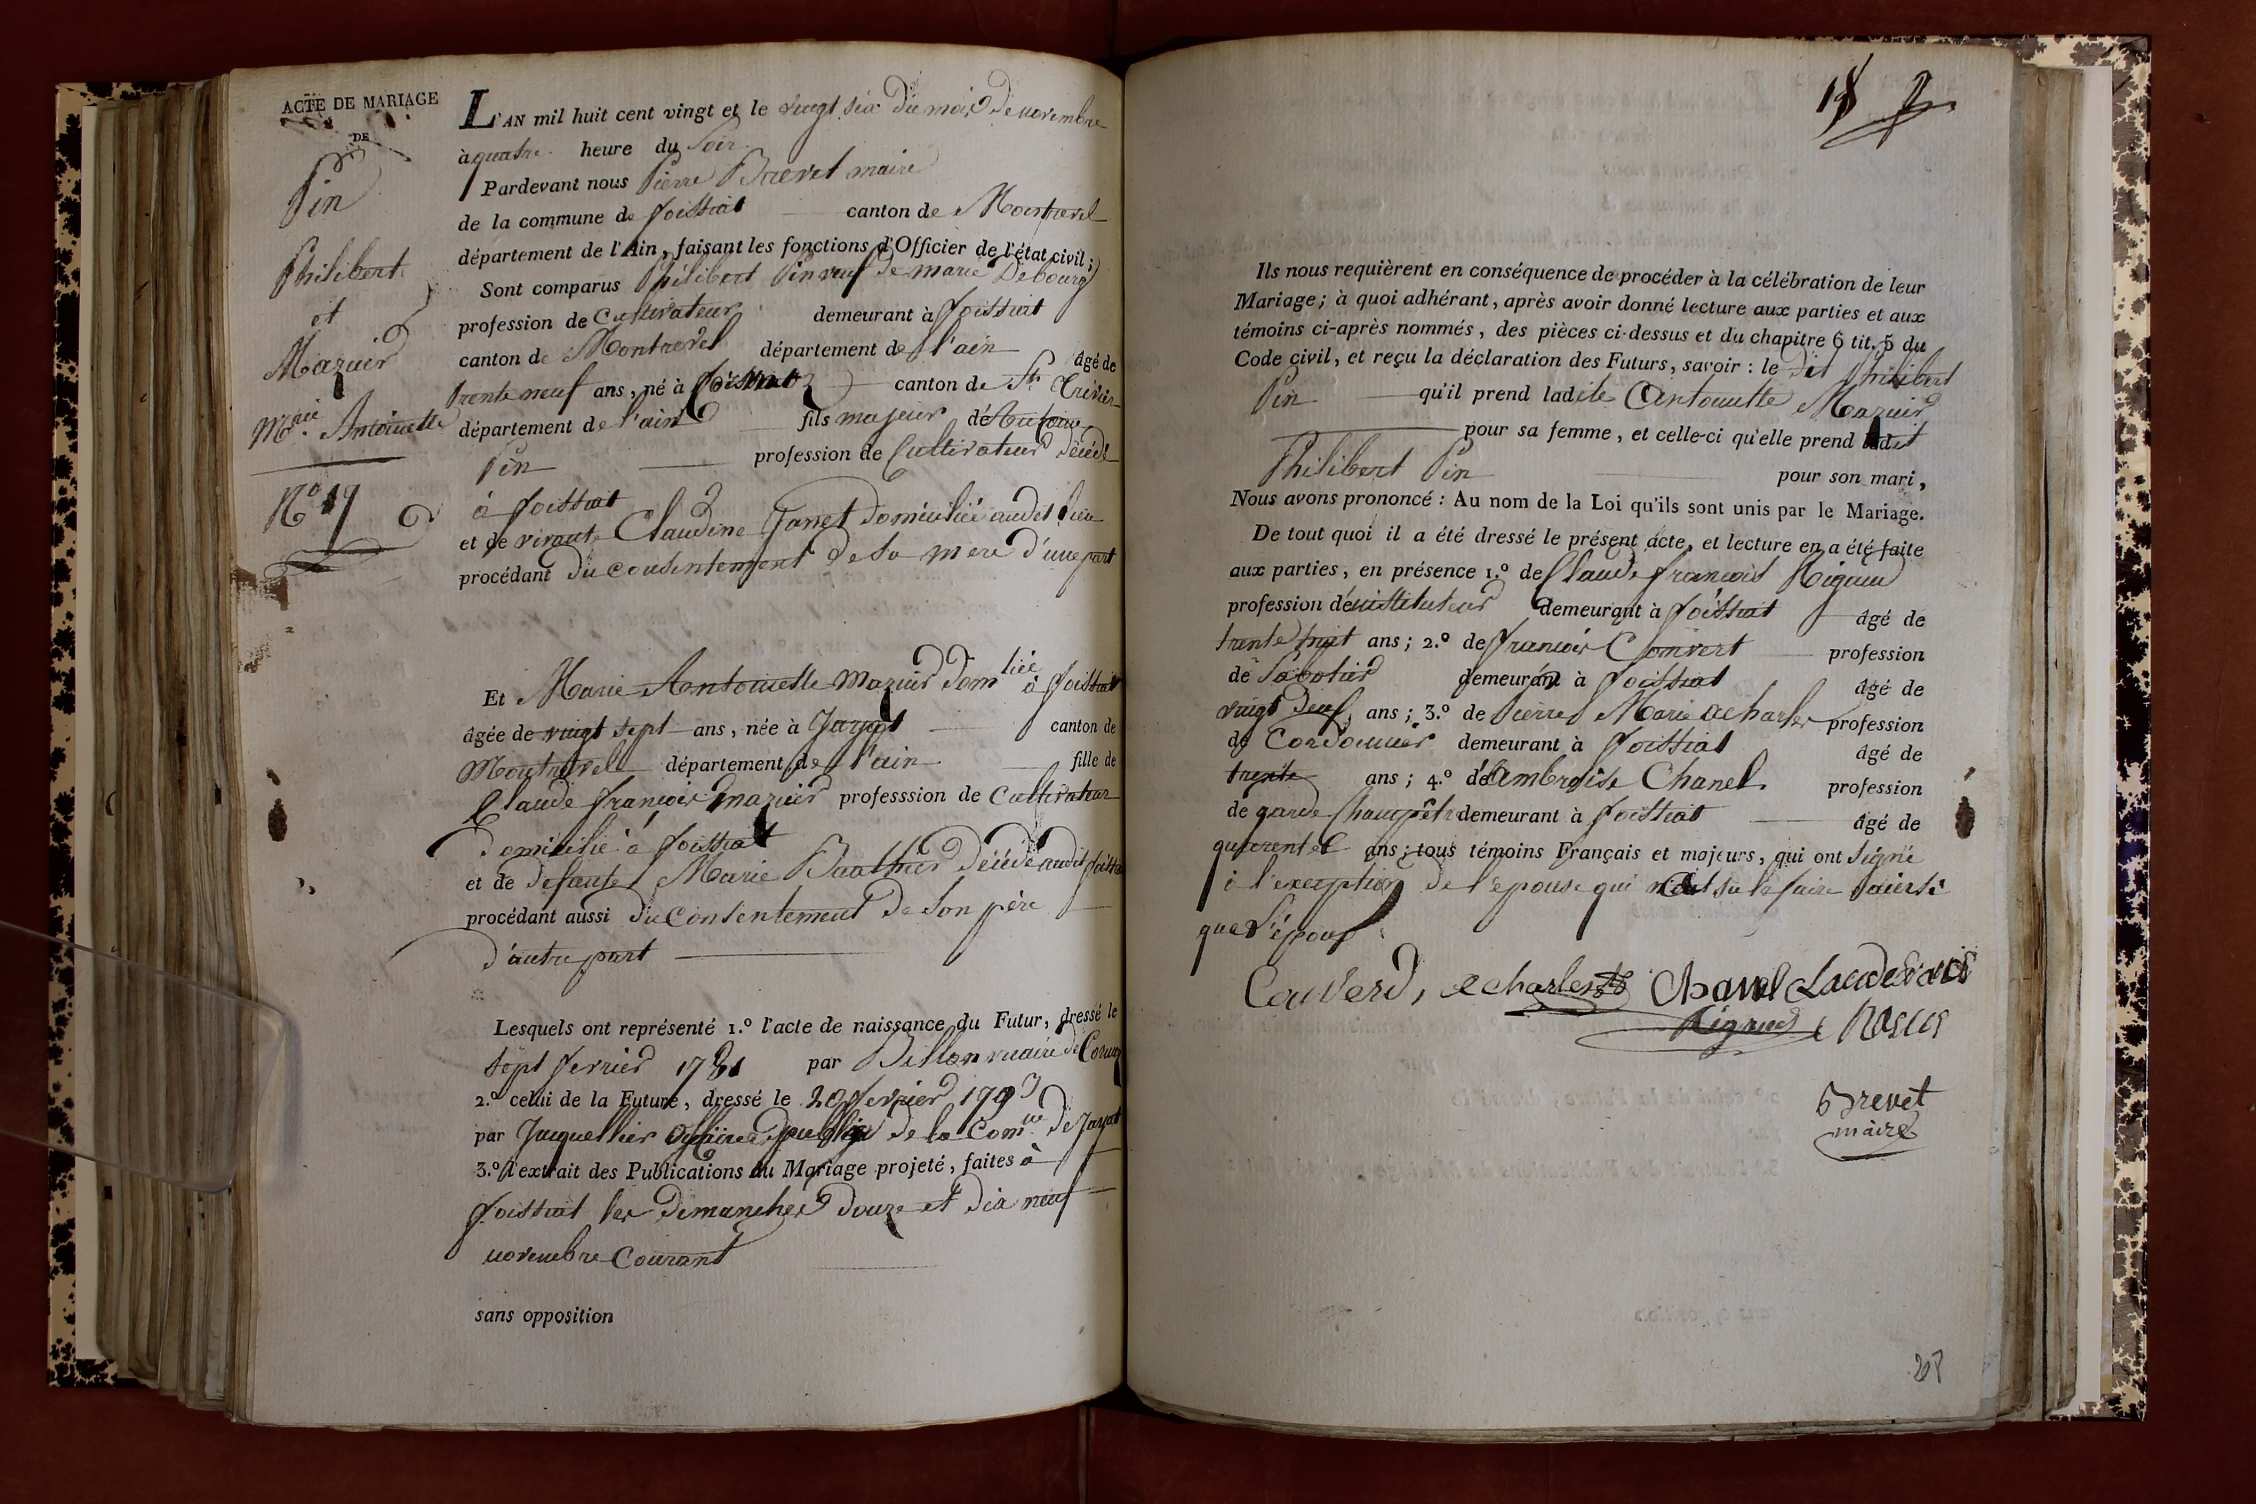 ACTE DE MARIAGE
DE
Pin
Philibert
et
Mazuir
Mrie Antoinette
No 19
L'AN mil huit cent vingt et le vingt six du mois de novembre
à quatre heure du Soir
Pardevant nous Pierre Brevet maire
de la commune de foissiat canton de Montrevel
département de l'Ain, faisant les fonctions d'Officier de l'état civil;
Sont comparus Philibert Pin veuf de marie Debourg
profession de Cultivateur demeurant à foissiat
canton de Montrevel département de l'ain âgé de
trente neuf ans, né à canton de St Trivier
département de l'ain fils majeur d'Antoine
Pin profession de Cultivateur décédé
à foissiat
et de vivante Claudine Janet domiciliée audit lieu
procédant du consentement de sa mere d'une part
Et Marie Antoinette Mazuir domliée à foissiat
âgée de vingt sept ans, née à Jayat canton de
Montrevel département de l'ain fille de
Claude françois Mazuir professsion de Cultivateur
domicilié à foissiat
et de defunte Marie Buathier décédé audit foissiat
procédant aussi du consentement de son père
d'autre part
Lesquels ont représenté 1.º l'acte de naissance du Futur, dressé le
sept fevrier 1781 par Billon vicaire de
2.º celui de la Future, dressé le 20 fevrier 1793
par Jacquellier officier public de la Comne de Jayat
3.º l'extrait des Publications du Mariage projeté, faites à
foissiat les dimanches douze et dix neuf
novembre Courant
sans opposition
18
Ils nous requièrent en conséquence de procéder à la célébration de leur
Mariage; à quoi adhérant, après avoir donné lecture aux parties et aux
témoins ci-après nommés, des pièces ci-dessus et du chapitre 6 tit. 5 du
Code civil, et reçu la déclaration des Futurs, savoir : le dit Philibert
Pin qu'il prend ladite Antoinette Mazuir
pour sa femme, et celle-ci qu'elle prend ledit
Philibert Pin pour son mari,
Nous avons prononcé : Au nom de la Loi qu'ils sont unis par le Mariage.
De tout quoi il a été dressé le présent acte, et lecture en a été faite
aux parties, en présence 1.º de Claude françois Rigaud
profession d'instituteur demeurant à foissiat âgé de
trente huit ans; 2.º de françois Convert profession
de Sabotier demeurant à foissiat âgé de
vingt neuf ans; 3.º de Pierre Marie Acharles profession
de Cordonnier demeurant à foissiat âgé de
trente ans; 4.º d'Ambroise Chanel profession
de garde Champêtre demeurant à foissiat âgé de
quarente ans; tous témoins Français et majeurs, qui ont signé
à l'exception de l'épouse qui n'a sû le faire ainsi
que l'époux
Couverd, acharles Chanel
Rigaud
Brevet
maire
208